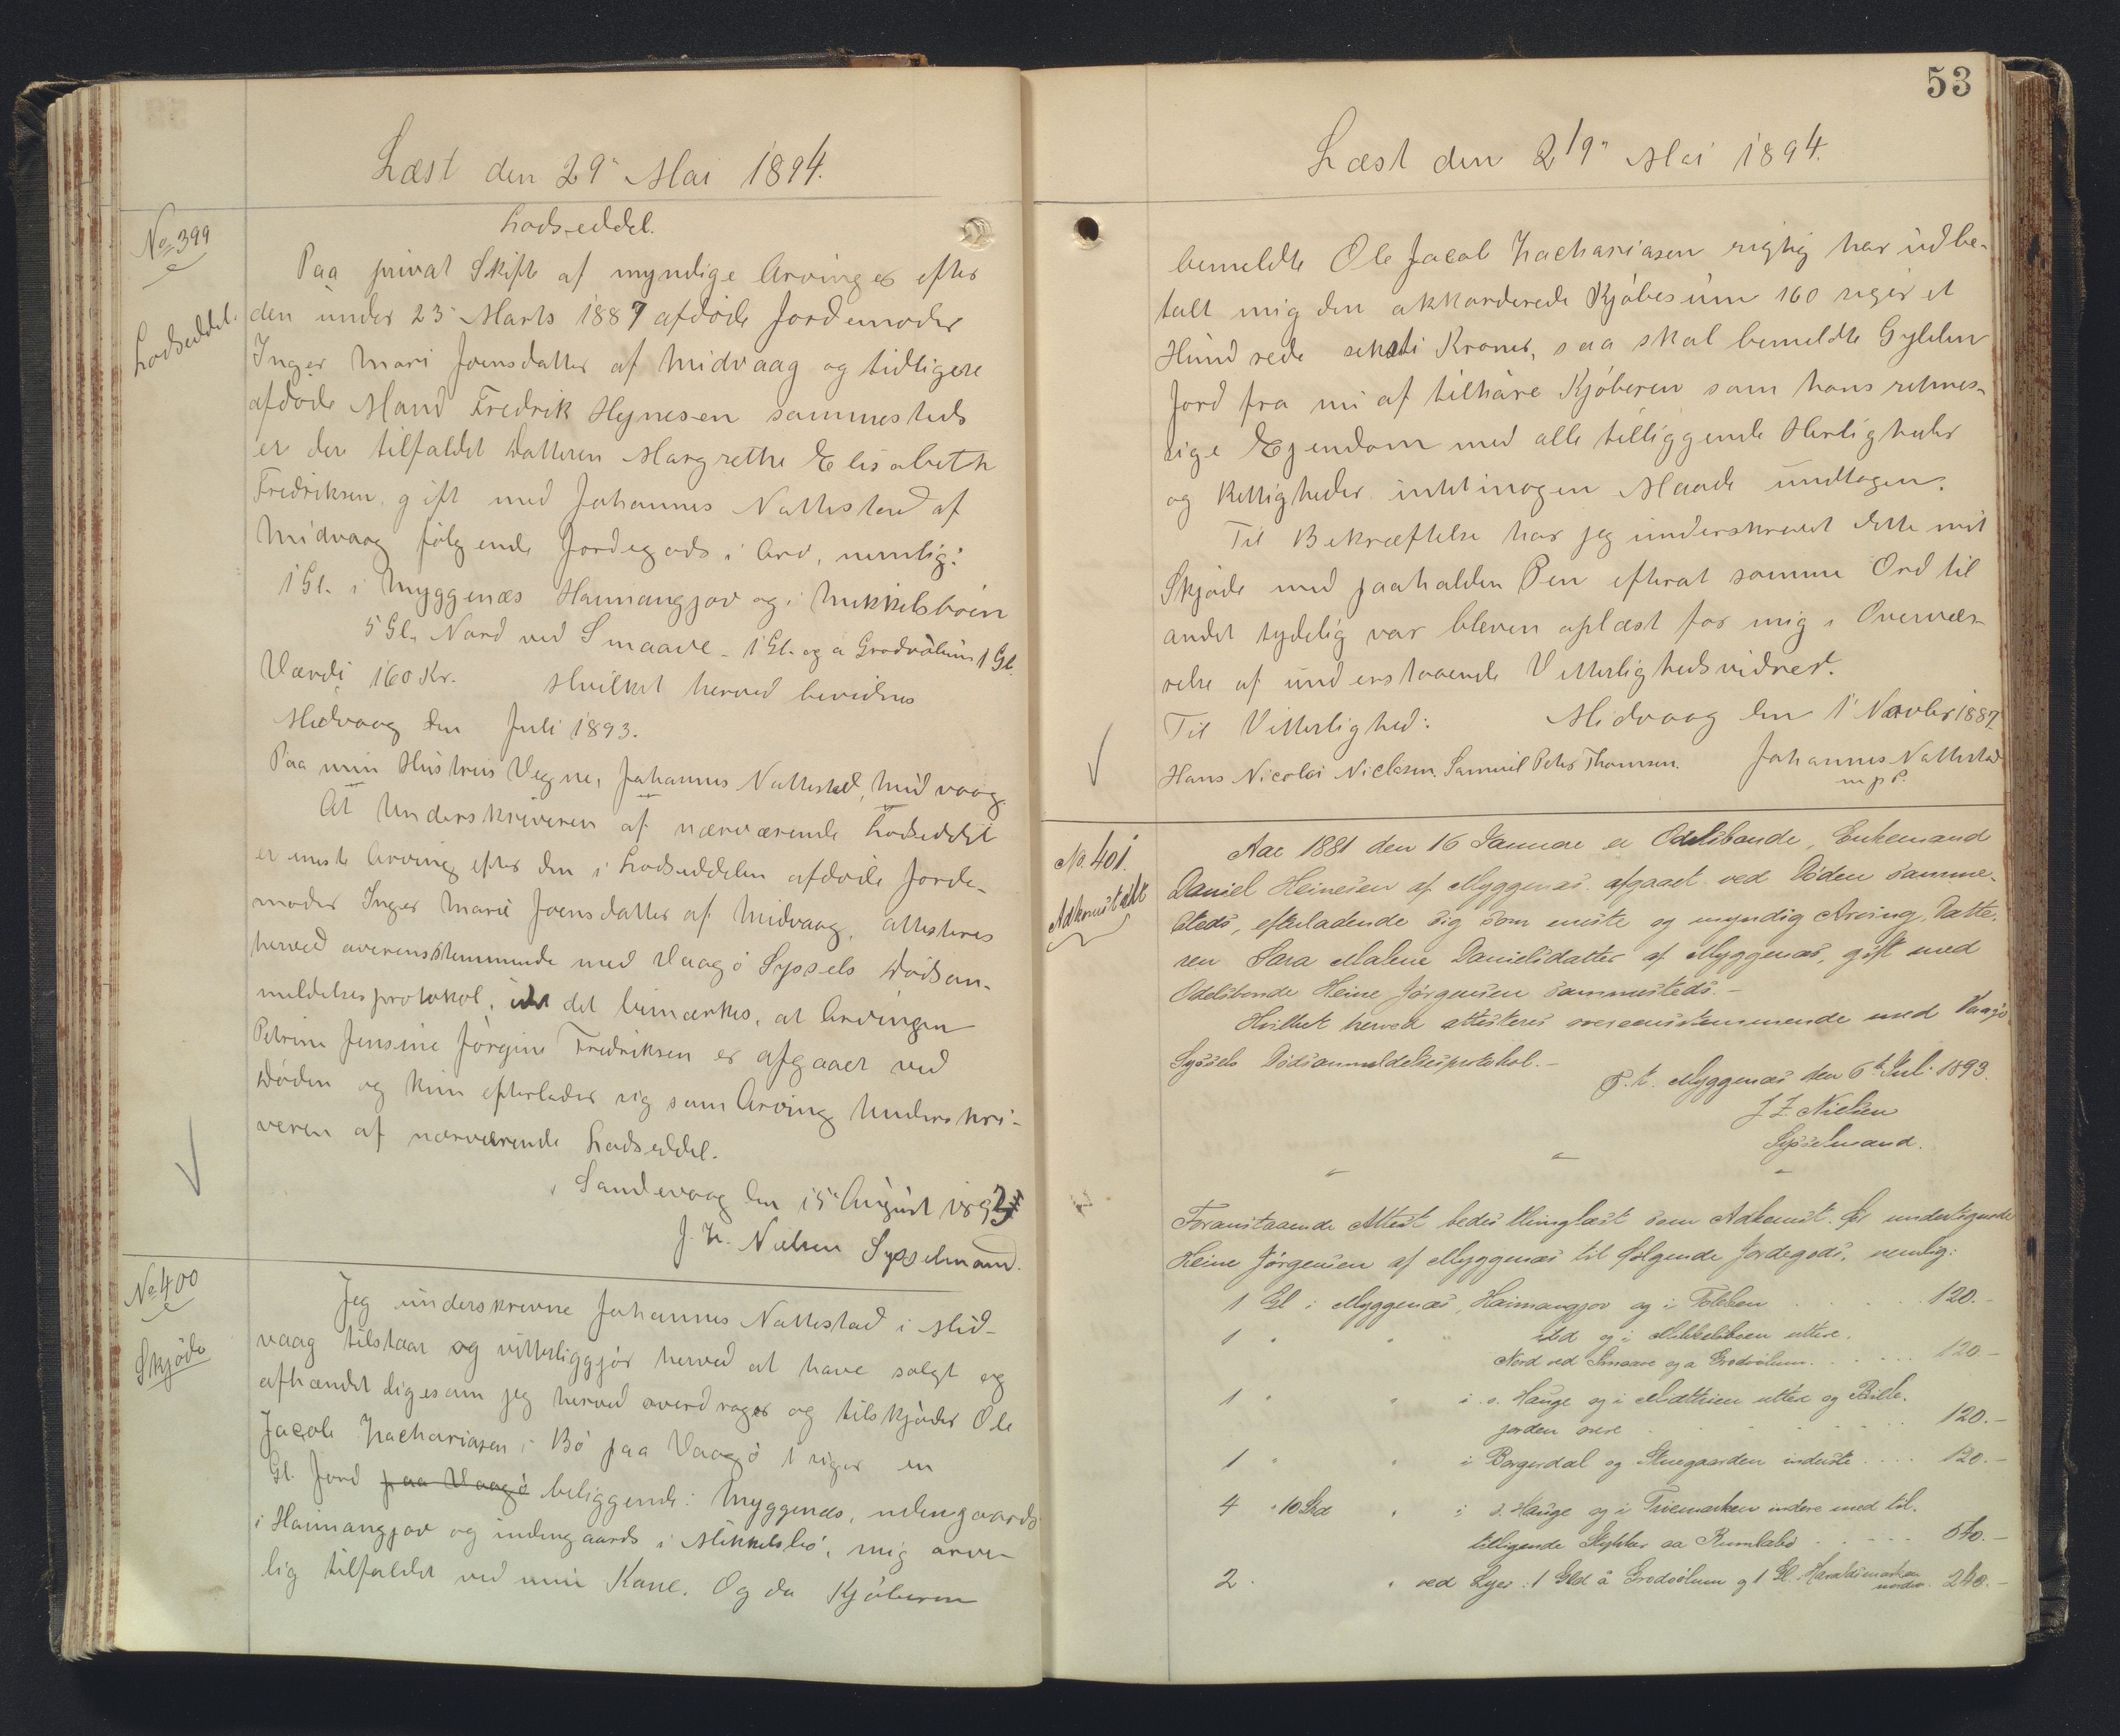 Læst den 29" Mai 1894.
No 399
Lodseddel.
Lodseddel.
Paa privat Skifte af myndige Arvinger efter
den under 23 Marts 1887 afdøde Jordemoder
Inger Mari Joensdatter af Midvaag og tidligere
afdøde Mand Fredrik Heynesen sammesteds
er der tilfaldet Datteren Margrethe Elisabeth
Fredriksen, gift med Johannes Nattestad af
Midvaag følgende Jordegods i Arv, nemlig:
1 Gl. i Myggenæs Haimangjov og i Mikkelsbøen
5 Gl. Nord ved Smaave - 1 Gl. og a Grodvølum 1 Gl.
Værdi 160 Kr. Hvilket herved bevidnes
Midvaag den Juli 1893.
Paa min Hustrus Vegne, Johannes Nattestad, Midvaag
At Underskriveren af nærværende Lodseddel
er eneste Arving efter den i Lodseddelen afdøde Jorde-
moder Inger Marie Joensdatter af Midvaag, attesteres
herved overensstemmende med Vaagø Syssels Dødsan-
meldelsesprotokol, idet det bemærkes, at Arvingen
Petrine Jensine Jørgine Fredriksen er afgaaet ved
Døden og kun efterlader sig som Arving Underskri-
veren af nærværende Lodseddel.
Sandevaag den 15 August 1893
J. Z. Nielsen Sysselmand.
No 400
Skjøde
Jeg underskrevne Johannes Nattestad i Mid-
vaag tilstaar og vitterliggjør herved at have solgt og
afhændet ligesom jeg herved overdrager og tilskjøder Ole
Jacob Zachariasen i Bø paa Vaagø 1 siger en
Gl. Jord paa Vaagø beliggende i Myggenæs, udengaards
i Haimangjov og indengaards i Mikkelsbø, mig arve-
lig tilfaldet ved min Kone. Og da Kjøberen
53
Læst den 29" Mai 1894.
bemeldte Ole Jacob Zachariasen rigtig har udbe-
talt mig den akkorderede Kjøbesum 160 siger et
Hundrede seksti Kroner, saa skal bemeldte Gylden
Jord fra nu af tilhøre Kjøberen som hans retmes-
sige Ejendom med alle tilliggende Herligheder
og Rettigheder intet i nogen Maade undtagen.
Til Bekræftelse har jeg underskrevet dette mit
Skjøde med paaholden Pen efterat samme Ord til
andet tydelig var bleven oplæst for mig i Overvæ-
relse af understaaende Vitterlighedsvidner.
Midvaag den 1' Novbr 1887
Til Vitterlighed:
Hans Nicolai Niclasen. Samuel Peter Thomsen. Johannes Nattestad
m. p. P.
No. 401.
Adkomstatt
Aar 1881 den 16 Januar er Odelsbonde, Enkemand
Daniel Heinesen af Myggenæs afgaaet ved Døden samme-
steds, efterladende sig som eneste og myndig Arving, Datte-
ren Sara Malene Danielsdatter af Myggenæs, gift med
Odelsbonde Heine Jørgensen sammesteds.-
Hvilket herved attesteres overensstemmende med Vaagø
Syssels Dødsanmeldelsesprotokol.-
p. t. Myggenæs den 6te Juli 1893.
J Z. Nielsen
Sysselmand.
Foranstaaende Attest bedes thinglæst som Adkomst for undertegnede
Heine Jørgensen af Myggenæs til følgende Jordegods, nemlig:
1 Gl i Myggenæs, Haimangjov og i 120.-
1 " " ibd og i Mikkelsbøen uttere.
Nord ved Smaave og a Grodvølum 120-
1 " " i s. Hauge og i uttere og
jorden 120.-
1 " " i Borgardal og Stuegaarden inderste 120.-
4 " 10 Skd " i s. Hauge og i indere med til-
tilligende Stykker aa 540.-
2 " ved Lyer: 1 Gld å Grodvølum og 1 Gl. 240.-